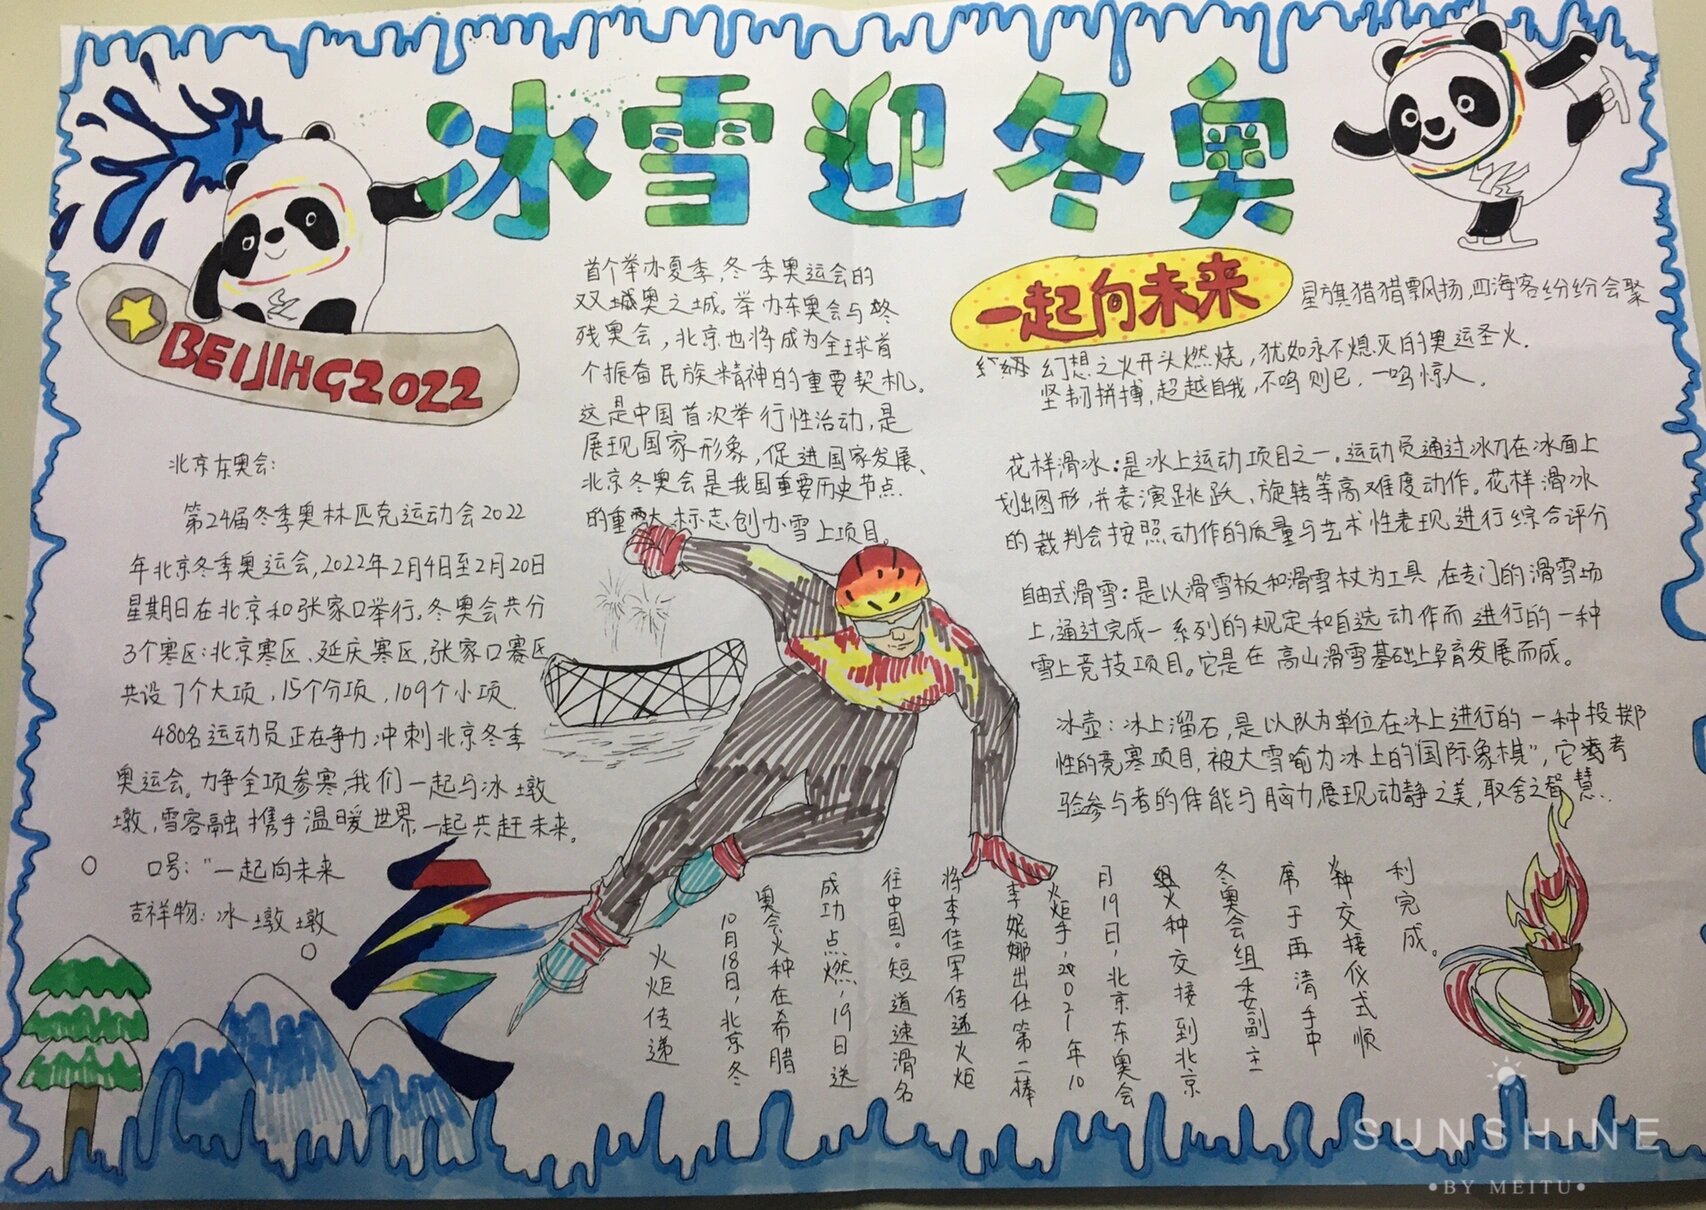 冰雪迎冬奥
BEIJING2022
北京东奥会:
第24届冬季奥林匹克运动会2022
年北京冬季奥运会,2022年2月4日至2月20日
星期日在北京和张家口举行。冬奥会共分
3个寒区:北京寒区、延庆寒区,张家口赛区
共设7个大项,15个分项,109个小项.
480名运动员正在争力冲刺北京冬季
奥运会。力争全项参寒,我们一起与冰墩
墩,雪容融携手温暖世界,一起共赶未来。
口号:“一起向未来
吉祥物:冰墩墩
首个举办夏季,冬季奥运会的
双城奥之城。举办东奥会与
残奥会,北京也将成为全球首
个振奋民族精神的重要契机。
这是中国首次举行性活动,是
展现国家形象,促进国家发展、
北京冬奥会是我国重要历史节点.
的重要标志创办雪上项目。
一起向未来
星旗猎猎飘扬,四海客纷纷会聚
幻想之火开头燃烧,犹如永不熄灭的奥运圣火.
坚韧拼搏,超越自我,不鸣则已,一鸣惊人.
花样滑冰:是冰上运动项目之一。运动员通过冰刀在冰面上
划出图形,并表演跳跃、旋转等高难度动作。花样滑冰
的裁判会按照动作的质量与艺术性表现进行综合评分
自由式滑雪:是以滑雪板和滑雪杖为工具,在专门的滑雪场
上,通过完成一系列的规定和自选动作而进行的一种
雪上竞技项目。它是在高山滑雪基础上孕育发展而成。
冰壶:冰上溜石,是以队为单位在冰上进行的一种投掷
性的竞寒项目,被大雪喻为冰上的“国际象棋”,它考
验参与者的体能与脑力,展现动静之美,取舍之智慧.
火炬传递
10月18日,北京冬
奥会火种在希腊
成功点燃,19日送
往中国。短道速滑名
将李佳军传递火炬
李妮娜出任第二棒
火炬手,2021年10
月19日,北京东奥会
组火种交接到北京
冬奥会组委副主
席于再清手中
火种交接仪式顺
利完成。
SUNSHINE
•BY MEITU•